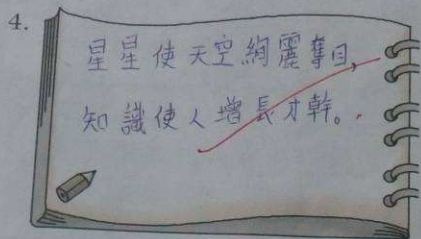 4.
星星使天空絢麗奪目,
知識使人增長才幹。